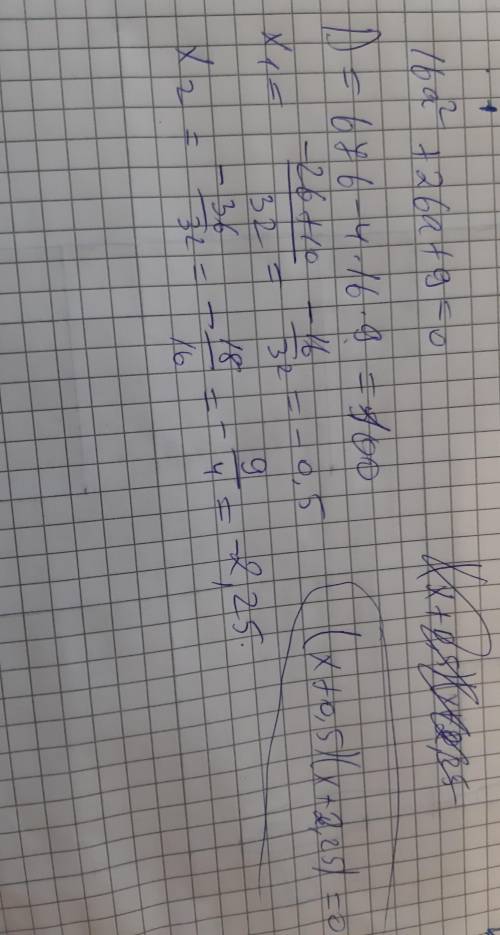 16x² + 26x + 9 = 0
D = 676 - 4·16·9 = 100
x1 = -26+10/32 = -16/32 = -0,5
x2 = -36/32 = -18/16 = -9/4 = -2,25.
(x+0,5)(x+2,25) = 0